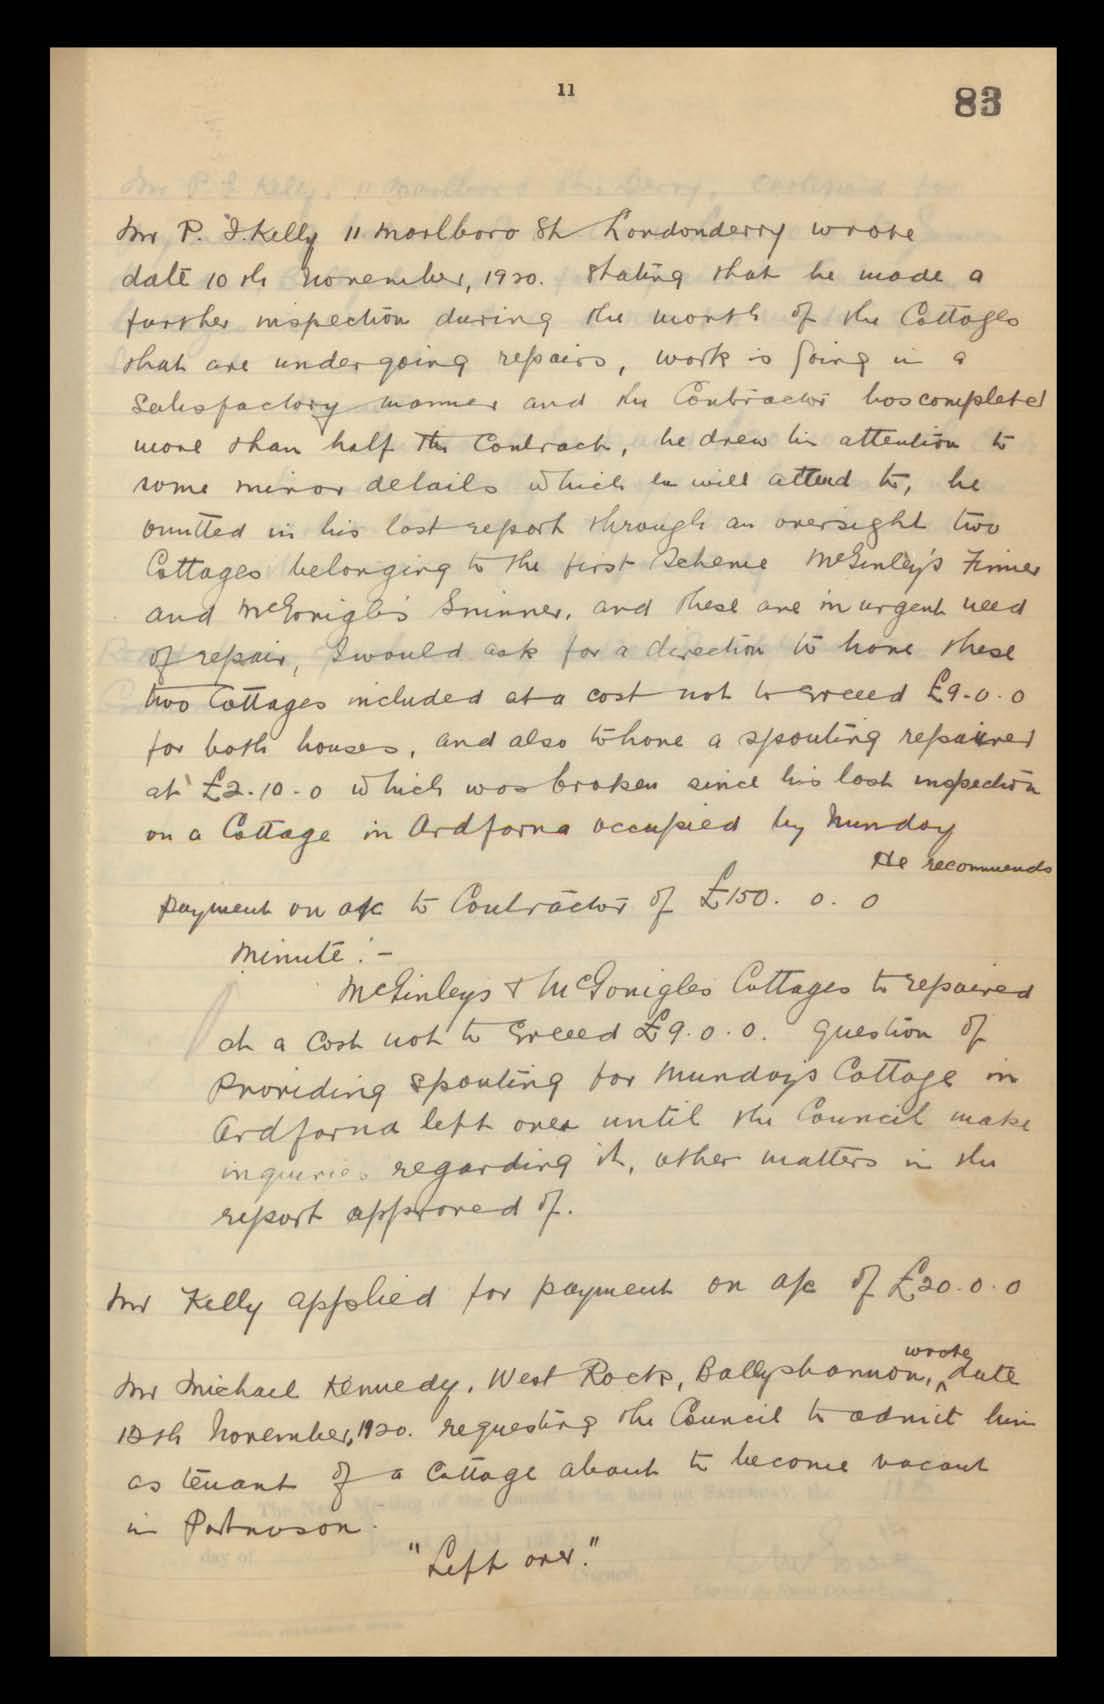 11
83
Mr P. J. Kelly 11 Marlboro St Londonderry wrote
date 10th November, 1920. Stating that he made a
further inspection during the month of the Cottages
that are undergoing repairs, work is going in a
Satisfactory manner and the Contractor has completed
more than half the Contract, he drew his attention to
some minor details which he will attend to, he
omitted in his last report through an oversight two
Cottages belonging to the first Scheme McGinley's Finner
and McGonigle's Sminner, and these are in urgent need
of repair, I would ask for a direction to have these
two Cottages included at a cost not to exceed £9-0-0
for both houses, and also to have a spouting repaired
at £2-10-0 which was broken since his last inspection
on a Cottage in Ardfarna occupied by Munday
He recommends
payment on a/c to Contractor of £150. 0. 0
Minute:-
McGinleys & McGonigles Cottages to repaired
at a cost not to exceed £9.0.0. Question of
Providing spouting for Munday's Cottage in
Ardfarna left over until the Council make
inquiries regarding it, other matters in the
report approved of.
Mr Kelly applied for payment on a/c of £20.0.0
Mr Michael Kennedy, West Rock, Ballyshannon, wrote date
12th November, 1920. requesting the Council to admit him
as tenant of a Cottage about to become vacant
in Portnason.
"Left over."